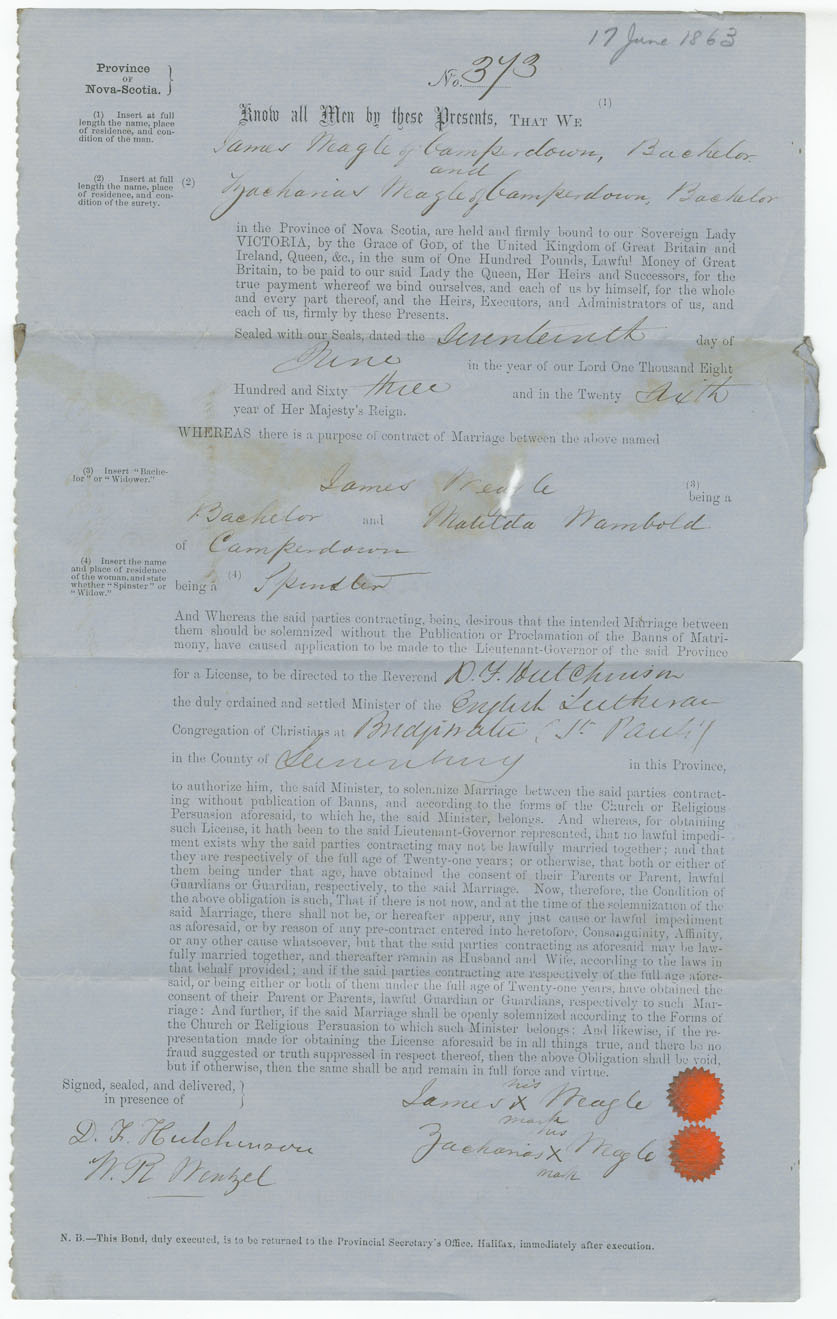 17 June 1863
Province
OF
Nova-Scotia.
No. 373
(1) Insert at full
length the name, place
of residence, and con-
dition of the man.
Know all Men by these Presents, THAT WE (1)
James Weagle of Camperdown, Bachelor
and
(2) Insert at full
length the name, place
of residence, and con-
dition of the surety.
(2) Zacharias Weagle of Camperdown, Bachelor
in the Province of Nova Scotia, are held and firmly bound to our Sovereign Lady
VICTORIA, by the Grace of GOD, of the United Kingdom of Great Britain and
Ireland, Queen, &c., in the sum of One Hundred Pounds, Lawful Money of Great
Britain, to be paid to our said Lady the Queen, Her Heirs and Successors, for the
true payment whereof we bind ourselves, and each of us by himself, for the whole
and every part thereof, and the Heirs, Executors, and Administrators of us, and
each of us, firmly by these Presents.
Sealed with our Seals, dated the Seventeenth day of
June in the year of our Lord One Thousand Eight
Hundred and Sixty three and in the Twenty sixth
year of Her Majesty's Reign.
WHEREAS there is a purpose of contract of Marriage between the above named
(3) Insert "Bache-
lor" or "Widower."
James Weagle (3) being a
Bachelor and Matilda Wambold
of Camperdown
(4) Insert the name
and place of residence
of the woman, and state
whether "Spinster" or
"Widow."
being a (4) Spinster
And Whereas the said parties contracting, being desirous that the intended Marriage between
them should be solemnized without the Publication or Proclamation of the Banns of Matri-
mony, have caused application to be made to the Lieutenant-Governor of the said Province
for a License, to be directed to the Reverend D. F. Hutchinson
the duly ordained and settled Minister of the English Lutheran
Congregation of Christians at Bridgewater (St Paul's)
in the County of Lunenburg in this Province,
to authorize him, the said Minister, to solemnize Marriage between the said parties contract-
ing without publication of Banns, and according to the forms of the Church or Religious
Persuasion aforesaid, to which he, the said Minister, belongs. And whereas, for obtaining
such License, it hath been to the said Lieutenant-Governor represented, that no lawful impedi-
ment exists why the said parties contracting may not be lawfully married together; and that
they are respectively of the full age of Twenty-one years; or otherwise, that both or either of
them being under that age, have obtained the consent of their Parents or Parent, lawful
Guardians or Guardian, respectively, to the said Marriage. Now, therefore, the Condition of
the above obligation is such, That if there is not now, and at the time of the solemnization of the
said Marriage, there shall not be, or hereafter appear, any just cause or lawful impediment
as aforesaid, or by reason of any pre-contract entered into heretofore, Consanguinity, Affinity,
or any other cause whatsoever, but that the said parties contracting as aforesaid may be law-
fully married together, and thereafter remain as Husband and Wife, according to the laws in
that behalf provided; and if the said parties contracting are respectively of the full age afore-
said, or being either or both of them under the full age of Twenty-one years, have obtained the
consent of their Parent or Parents, lawful Guardian or Guardians, respectively to such Mar-
riage: And further, if the said Marriage shall be openly solemnized according to the Forms of
the Church or Religious Persuasion to which such Minister belongs: And likewise, if the re-
presentation made for obtaining the License aforesaid be in all things true, and there be no
fraud suggested or truth suppressed in respect thereof, then the above Obligation shall be void,
but if otherwise, then the same shall be and remain in full force and virtue.
Signed, sealed, and delivered,
in presence of
his
James X Weagle
mark
D. F. Hutchinson
his
Zacharias X Weagle
mark
W. R. Wentzel
N. B.—This Bond, duly executed, is to be returned to the Provincial Secretary's Office, Halifax, immediately after execution.